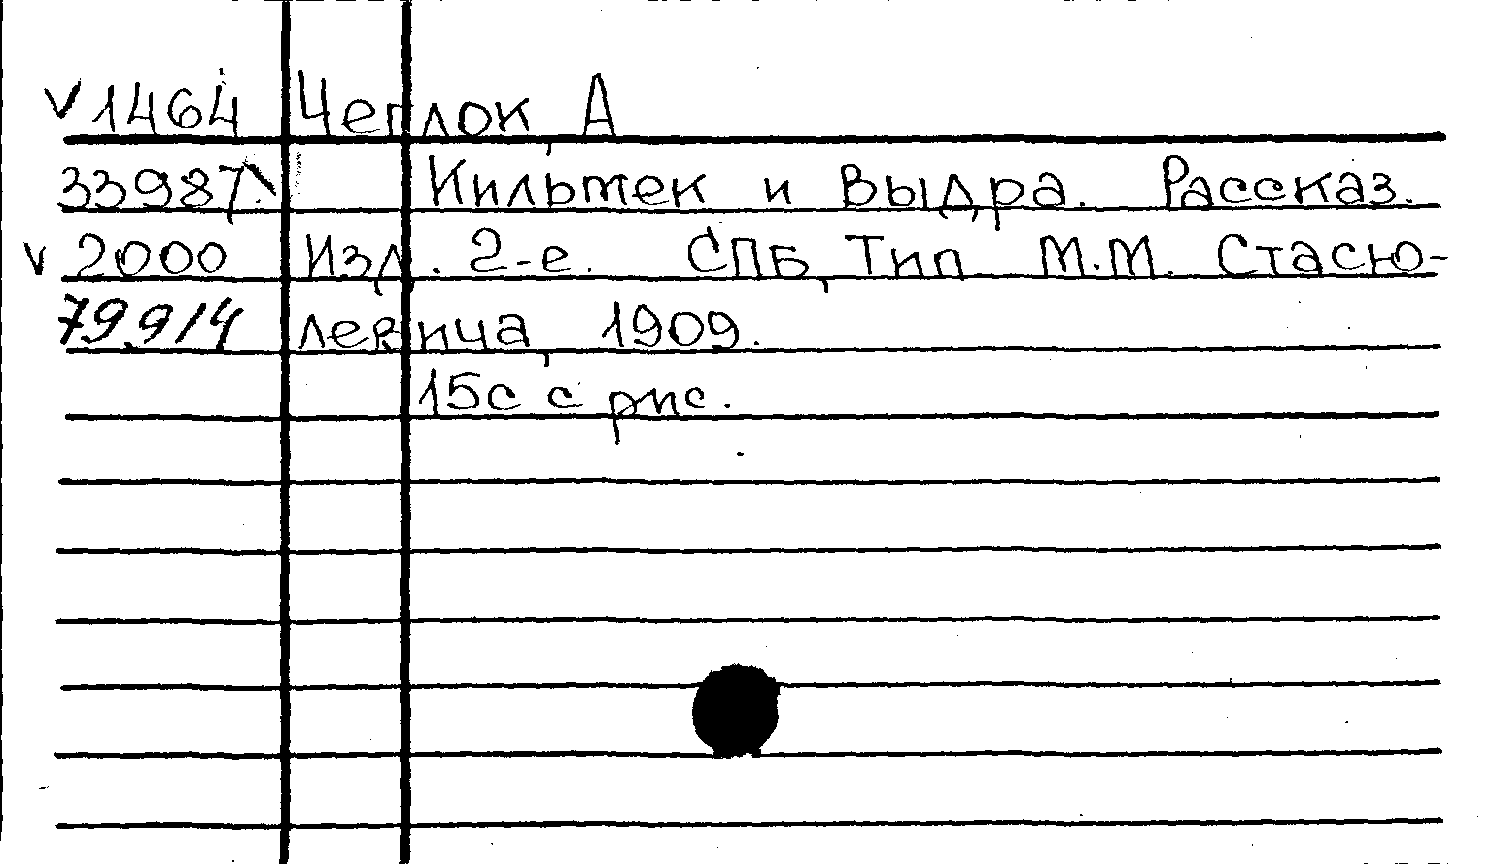 V 1464 Чеглок, А
33987 Кильтек и Выдра. Рассказ.
V 2000 Изд. 2-е. СПБ, Тип М.М. Стасю-
79914 левича, 1909.
15с с рис.